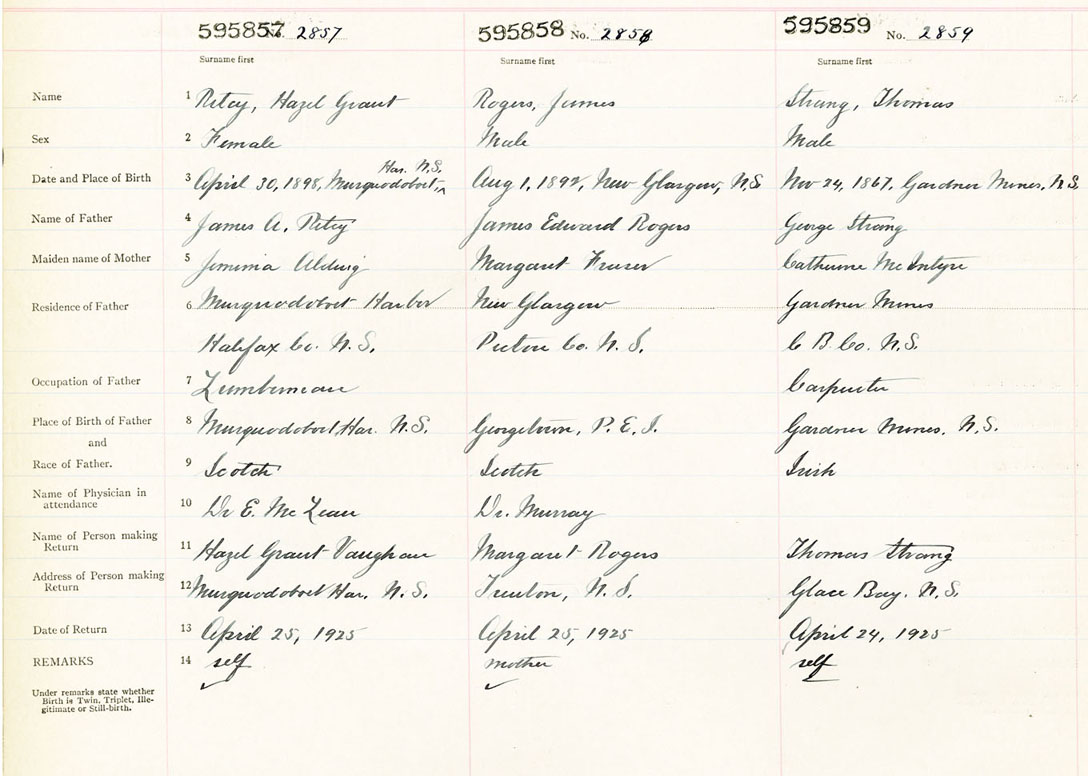 595857 No. 2857 595858 No. 2858 595859 No. 2859
Surname first Surname first Surname first
Name 1 Ritcy, Hazel Grant Rogers, James Strang, Thomas
Sex 2 Female Male Male
Har. N.S.
Date and Place of Birth 3 April 30, 1898, Musquodoboit Aug 1, New Glasgow, N.S Nov 24, 1867, Gardner Mines, N.S.
Name of Father 4 James A. Ritcy James Edward Rogers George Strang
Maiden name of Mother 5 Jemima Margaret Fraser Catherine McIntyre
Residence of Father 6 Musquodoboit Harbor New Glasgow Gardner Mines
Halifax Co. N.S. Pictou Co. N.S. C B. Co. N.S.
Occupation of Father 7 Lumberman Carpenter
Place of Birth of Father 8 Musquodoboit Har. N.S. Georgetown, P.E.I. Gardner Mines, N.S.
and
Race of Father. 9 Scotch Scotch Irish
Name of Physician in
attendance 10 Dr E. McLean Dr. Murray
Name of Person making
Return 11 Hazel Grant Vaughan Margaret Rogers Thomas Strang
Address of Person making
Return 12 Musquodoboit Har. N.S. Trenton, N.S. Glace Bay. N.S.
Date of Return 13 April 25, 1925 April 25, 1925 April 24, 1925
REMARKS 14 self mother self
Under remarks state whether
Birth is Twin, Triplet, Ille-
gitimate or Still-birth.